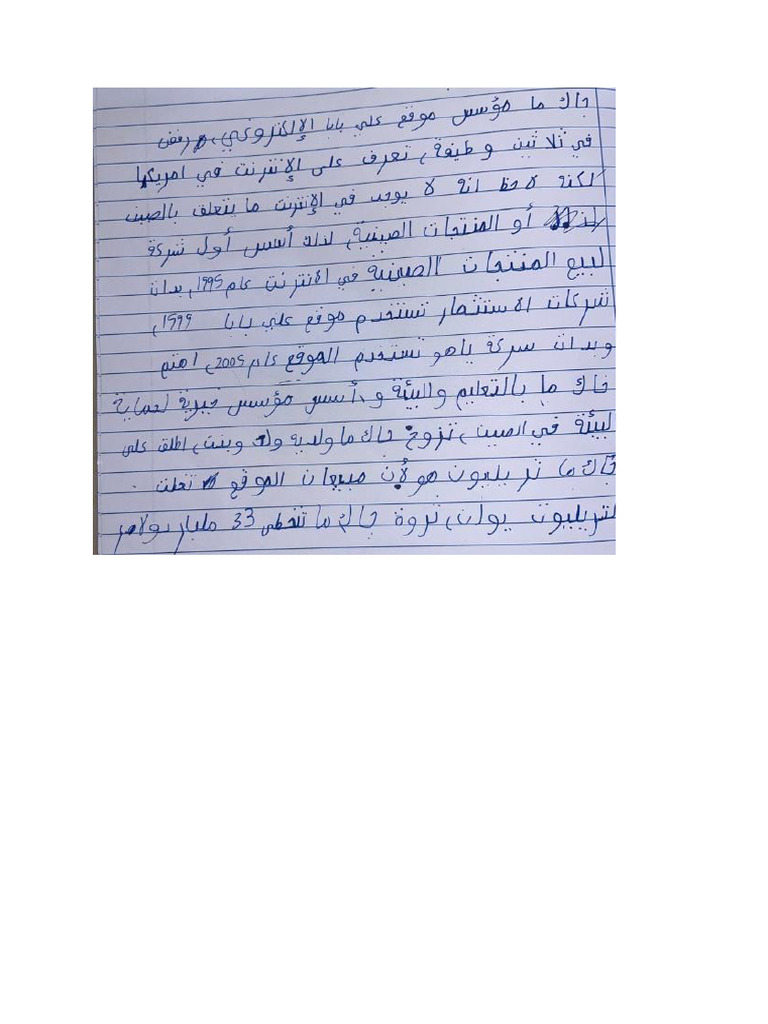 جاك ما مؤسس موقع علي بابا الإلكتروني، رفض
في ثلاثين وظيفة، تعرف على الإنترنت في امريكا
لكنه لاحظ انه لا يوجد في الإنترنت ما يتعلق بالصين
أو المنتجات الصينية، لذلك أسس أول شركة
لبيع المنتجات الصينية في الانترنت عام 1995، بدات
شركات الاستثمار تستخدم موقع علي بابا 1999،
وبدات سركة ياهو تستخدم الموقع عام 2005، اهتم
جاك ما بالتعليم والبيئة و، أسس مؤسس خيرية لحماية
لبيئة في الصين، تزوج جاك ما ولديه ولد وبنت، اطلق على
جاك ما تريليون هو لأن مبيعات الموقع تخلت
لتريليون يوان، ثروة جاك ما تتخطى 33 مليار دولار